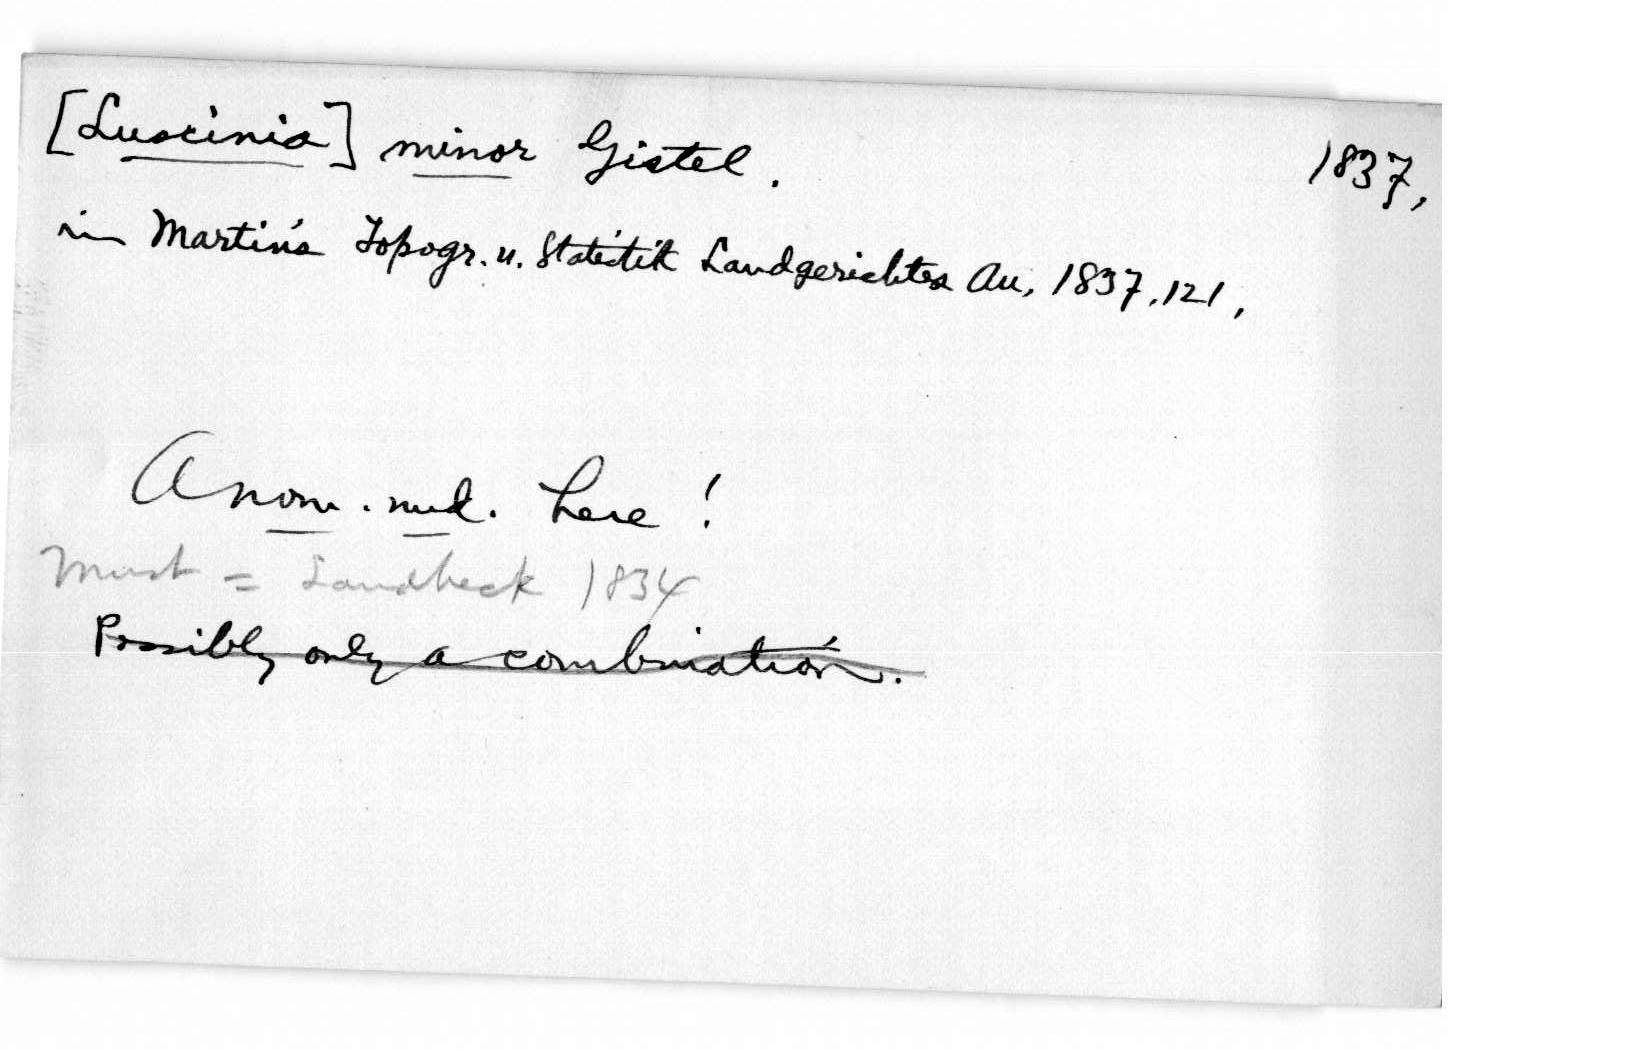 [Luscinia] minor Gistel. 1837,
in Martin's Topogr. u. Statistik Landgerichtes Au, 1837, 121,
A nom. nud. here!
Must = Landbeck 1834
Possibly only a combination.